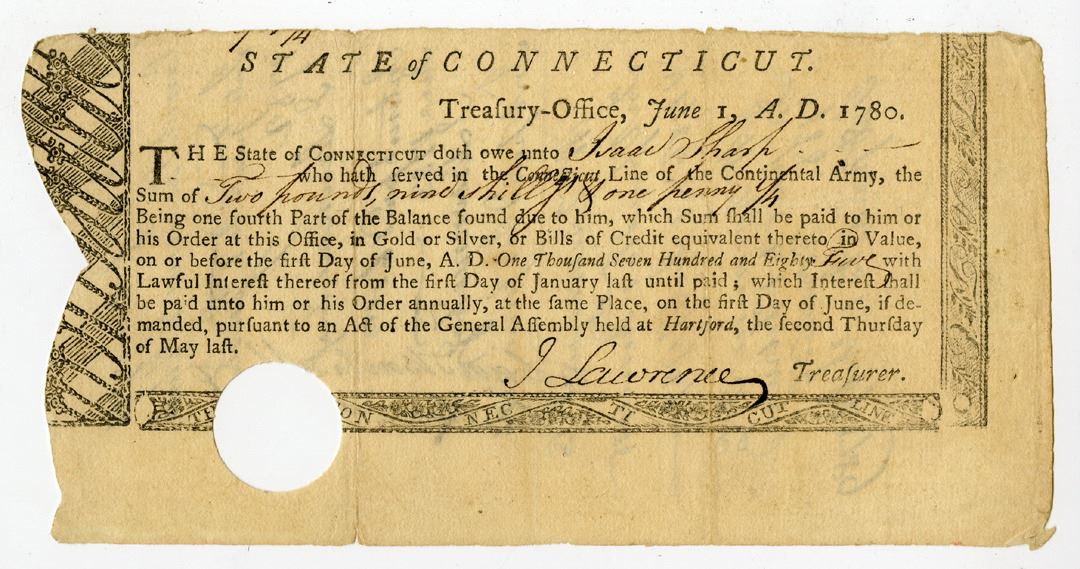 STATE of CONNECTICUT.
Treaſury-Office, June 1, A. D. 1780.
THE State of CONNECTICUT doth owe unto Isaac Sharp
who hath ſerved in the Connecticut Line of the Continental Army, the
Sum of Two pounds, nine shillgs & one penny 1/4
Being one fourth Part of the Balance found due to him, which Sum ſhall be paid to him or
his Order at this Office, in Gold or Silver, or Bills of Credit equivalent thereto in Value,
on or before the firſt Day of June, A. D. One Thouſand Seven Hundred and Eighty Five with
Lawful Intereſt thereof from the firſt Day of January laſt until paid; which Intereſt ſhall
be paid unto him or his Order annually, at the ſame Place, on the firſt Day of June, if de-
manded, purſuant to an Act of the General Aſſembly held at Hartford, the ſecond Thurſday
of May laſt.
J Lawrence Treaſurer.
TH ON NEC TI CUT LINE